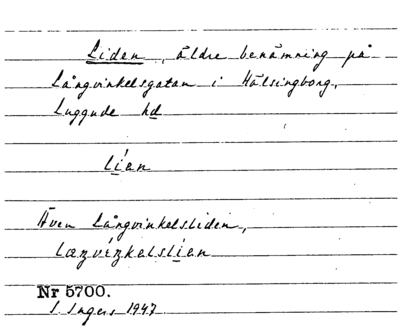 Liden, äldre benämning på
Långvinkelsgatan i Hälsingborg,
Luggude hd
lían
Även Långvinkelsliden,
Nr 5700.
I. Ingers 1947